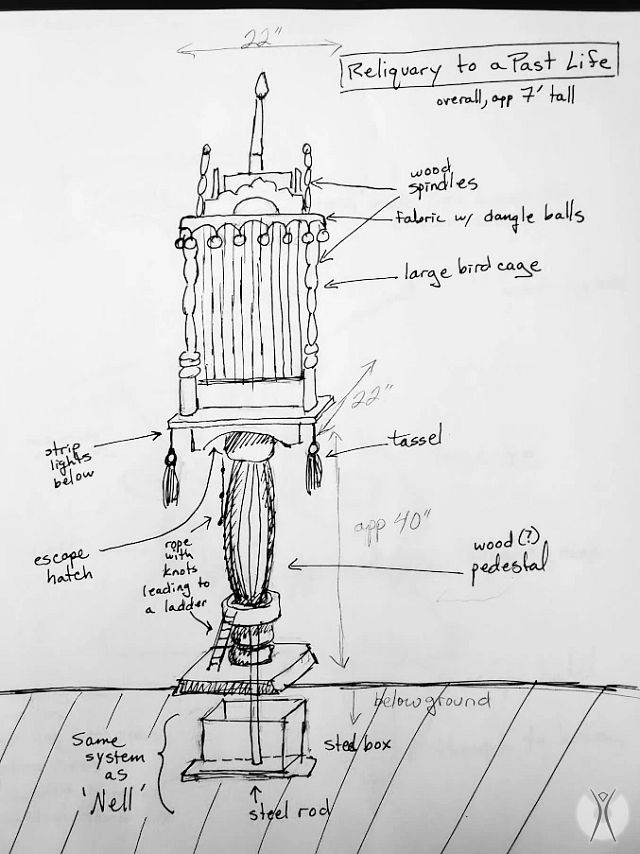 22"
Reliquary to a Past Life
overall, app 7' tall
wood
spindles
fabric w/ dangle balls
large bird cage
22"
tassel
strip
lights
below
app 40"
escape
hatch
rope
with
knots
leading to
a ladder
wood (?)
pedestal
below ground
steel box
Same
system
as
'Nell'
steel rod